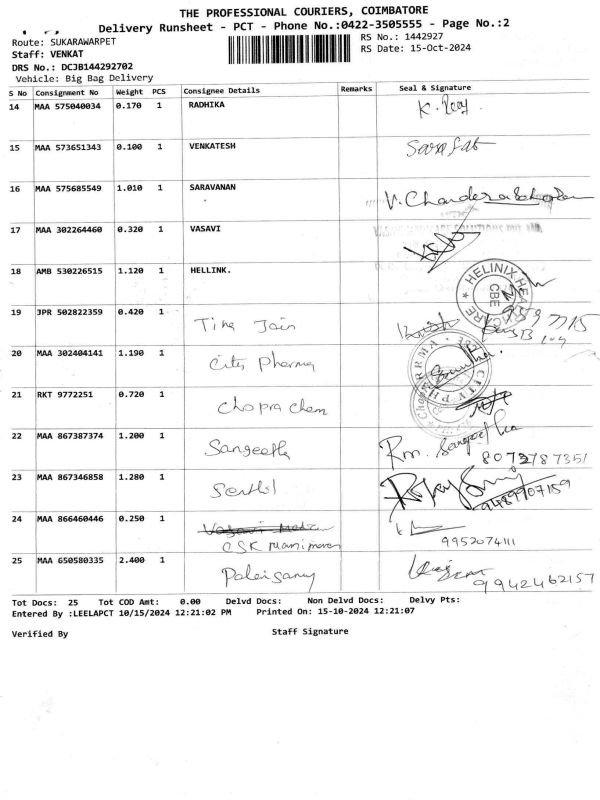 THE PROFESSIONAL COURIERS, COIMBATORE
Delivery Runsheet - PCT - Phone No.:0422-3505555 - Page No.:2
Route: SUKARAWARPET
RS No.: 1442927
Staff: VENKAT
RS Date: 15-Oct-2024
DRS No.: DCJB144292702
Vehicle: Big Bag Delivery
S No Consignment No Weight PCS Consignee Details Remarks Seal & Signature
14 MAA 575040034 0.170 1 RADHIKA K. Roy
15 MAA 573651343 0.100 1 VENKATESH
16 MAA 575685549 1.010 1 SARAVANAN V. Chandera
17 MAA 302264460 0.320 1 VASAVI
18 AMB 530226515 1.120 1 HELLINK. HELINIX HEALTHCARE CBE
19 JPR 502822359 0.420 1 Tina Jain
20 MAA 302404141 1.190 1 City Pharma
21 RKT 9772251 0.720 1 Chopra Chem
22 MAA 867387374 1.200 1 Sangeetha Rm. Sangeetha
8072787351
23 MAA 867346858 1.280 1 Senthil
9489907159
24 MAA 866460446 0.250 1
CSK Manimaran 9952074111
25 MAA 650580335 2.400 1 Palanisamy
9942462157
Tot Docs: 25 Tot COD Amt: 0.00 Delvd Docs: Non Delvd Docs: Delvy Pts:
Entered By :LEELAPCT 10/15/2024 12:21:02 PM Printed On: 15-10-2024 12:21:07
Verified By Staff Signature